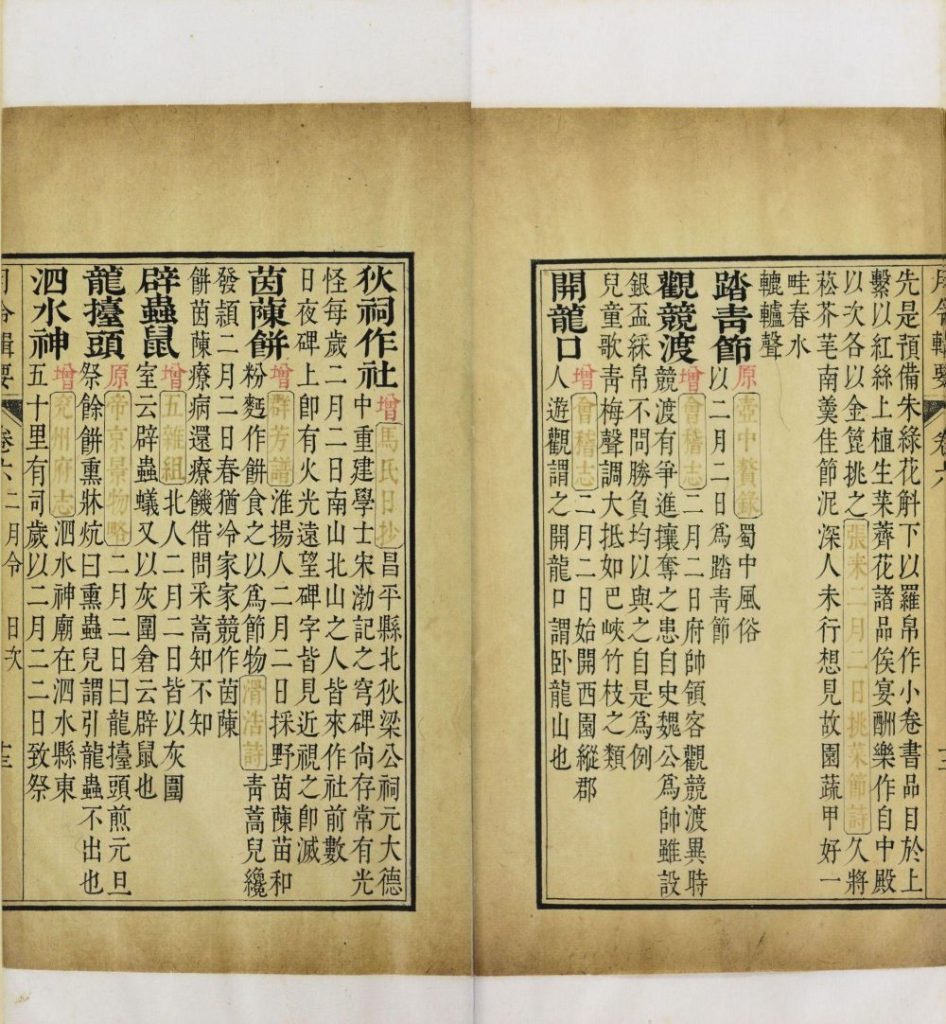 月令輯要 卷六
先是預備朱綠花斛下以羅帛作小卷書品目於上
繫以紅絲上植生菜薺花諸品俟宴酬樂作自中殿
以次各以金箆挑之張耒二月二日挑菜節詩久將
菘芥芼南羮佳節泥深人未行想見故園蔬甲好一
畦春水
轆轤聲
踏靑節原壺中贅錄蜀中風俗
以二月二日爲踏靑節
觀競渡增會稽志二月二日府帥領客觀競渡異時
競渡有爭進攘奪之患自史魏公爲帥雖設
銀盃綵帛不問勝負均以與之自是爲例
兒童歌靑梅聲調大抵如巴峽竹枝之類
開龍口增會稽志二月二日始開西園縱郡
人遊觀謂之開龍口謂卧龍山也
狄祠作社增馬氏日抄昌平縣北狄梁公祠元大德
中重建學士宋渤記之穹碑尙存常有光
怪每歲二月二日南山北山之人皆來作社前數
日夜碑上卽有火光遠望碑字皆見近視之卽滅
茵蔯餅增群芳譜淮揚人二月二日採野茵蔯苗和
粉麪作餅食之以爲節物滑浩詩靑蒿兒纔
發頴二月二日春猶冷家家競作茵蔯
餅茵蔯療病還療饑借問采蒿知不知
辟蟲鼠增五雜組北人二月二日皆以灰圍
室云辟蟲蟻又以灰圍倉云辟鼠也
龍擡頭原帝京景物略二月二日曰龍擡頭煎元旦
祭餘餅熏牀炕曰熏蟲兒謂引龍蟲不出也
泗水神增兖州府志泗水神廟在泗水縣東
五十里有司歲以二月二日致祭
月令輯要 卷六 二月令 日次 十三